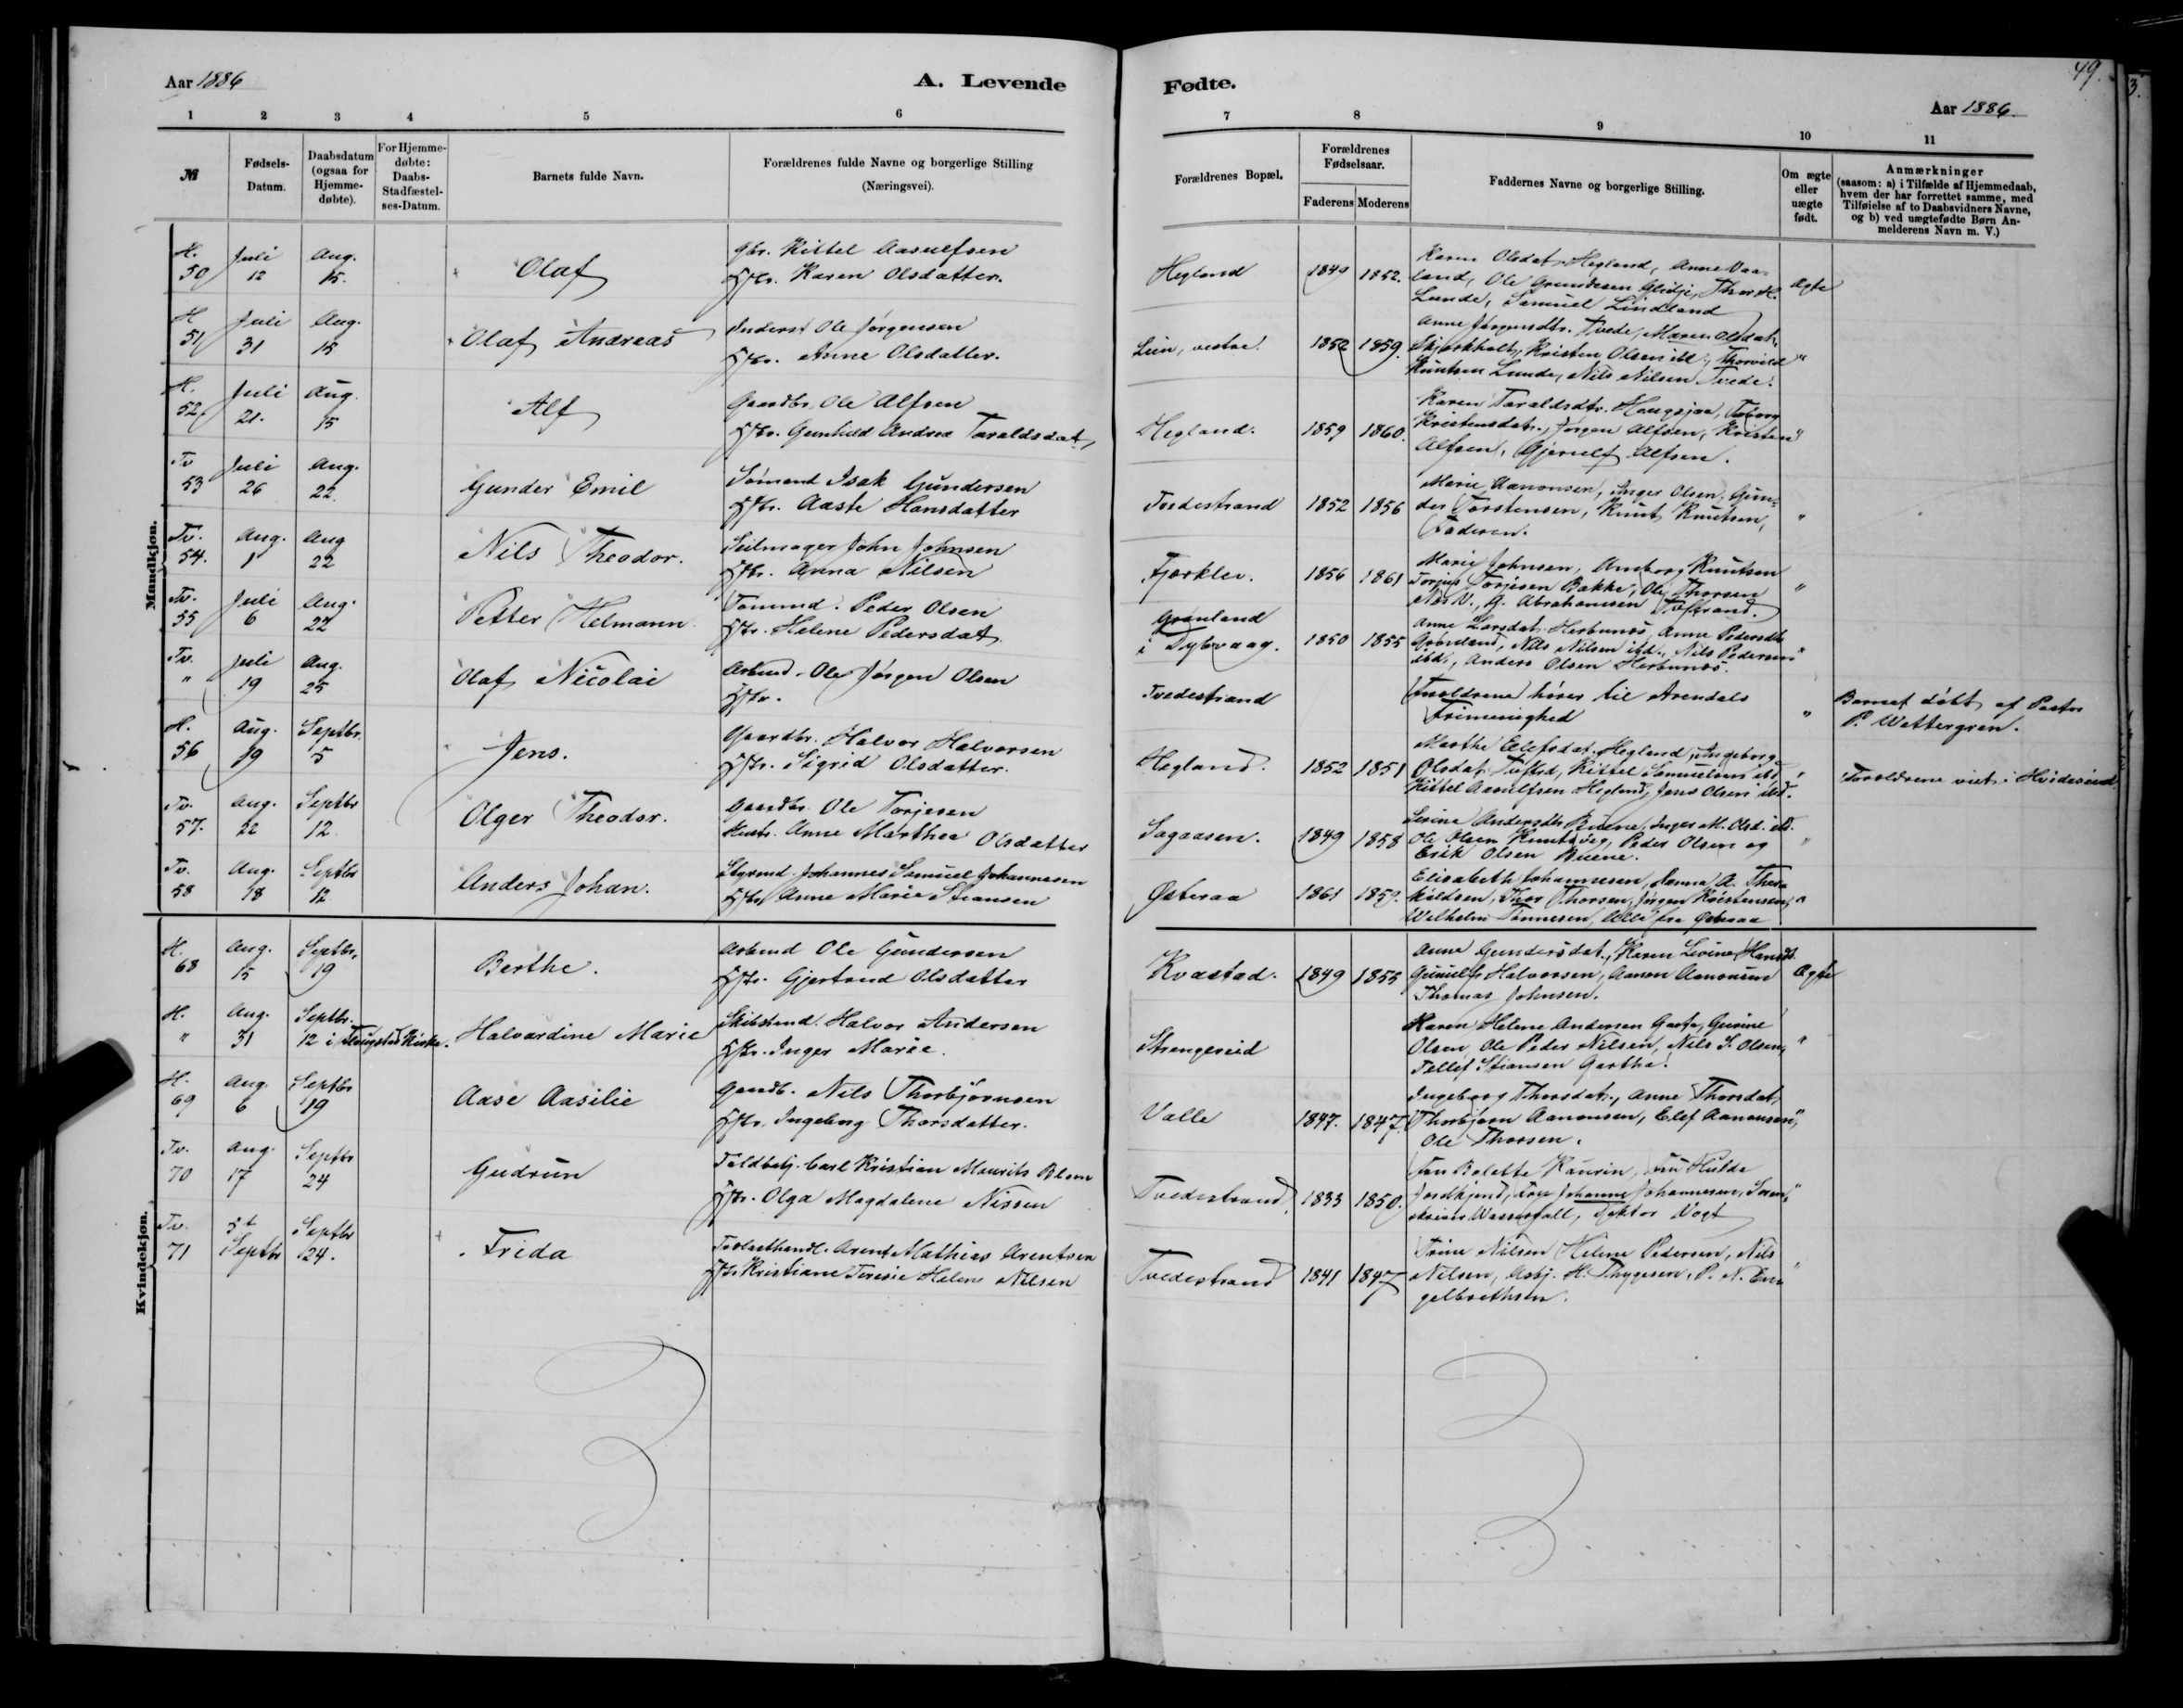 49.
3.
Aar 1886
A. Levende
Fødte.
Aar 1886.
1 2 3 4 5 6 7 8 9 10 11
№
Fødsels-
Datum.
Daabsdatum
(ogsaa for
Hjemme-
døbte).
For Hjemme-
døbte:
Daabs-
Stadfæstel-
ses-Datum.
Barnets fulde Navn.
Forældrenes fulde Navne og borgerlige Stilling
(Næringsvei).
Forældrenes Bopæl.
Forældrenes
Fødselsaar.
Faderens Moderens
Faddernes Navne og borgerlige Stilling.
Om ægte
eller
uægte
født.
Anmærkninger
(saasom: a) i Tilfælde af Hjemmedaab,
hvem der har forrettet samme, med
Tilføielse af to Daabsvidners Navne,
og b) ved uægtefødte Børn An-
melderens Navn m. V.)
Mandkjøn.
H. 50 Juli 12 Aug. 15. Olaf
Gbr. Kittel Aasulfsen
Hstr. Karen Olsdatter.
Hegland 1849 1852.
Karen Olsdat. Hegland, Anne Vaa-
land, Ole Gundersen Glidje, Thor H.
Lunde, Samuel Lindland
Ægte
H 51 Juli 31 Aug. 15 Olaf Andreas
Inderst Ole Jørgensen
Hstr. Anne Olsdatter.
Lien, vestre. 1852 1859.
Anne Jørgensdtr. Tvede, Maren Olsdat.
Skjerkholt, Kristen Olsen ibd., Thorvild
Knutsen Lunde, Nils Nilsen Tvede.
"
H. 52 Juli 21. Aug. 15 Alf
Gaardbr. Ole Alfsen
Hstr. Gunhild Andrea Taraldsdat.
Hegland. 1859 1860.
Karen Taraldsdtr. Haugsjaa,
Kristensdatr., Jørgen Alfsen, Kristen
Alfsen, Gjerulf Alfsen.
"
Tv 53 Juli 26 Aug. 22. Gunder Emil
Sømand Isak Gundersen
Hstr. Aaste Hansdatter
Tvedestrand 1852 1856
Marie Aanonsen, Inger Olsen, Gun-
der Torstensen, Knut Knutsen,
Faderen.
"
Tv. 54. Aug. 1 Aug 22 Nils Theodor.
Seilmager John Johnsen
Hstr. Anna Nilsen
Fjærklev. 1856 1861
Marie Johnsen, Anneborg Knutsen
Torjus Torjesen Bakke, Ole Thorsen
G. Abrahamsen Tvstrand.
"
Tv. 55 Juli 6 Aug. 22 Petter Helmann.
Tømmd. Peder Olsen
Hstr. Helene Pedersdat.
Grønland
i Dybvaag. 1850 1855
Anne Larsdat. Herbunøs, Anne Pedersdtr
Grønland, Nils Nilsen ibd., Nils Pedersen
ibd., Anders Olsen Herbunøs.
"
Tv. " Juli 19 Aug. 25 Olaf Nicolai
Arbmd. Ole Jørgen Olsen
Hstr.
Tvedestrand
Forældrene hører til Arendals
Frimenighed
"
Barnet døbt af Pastor
P. Wettergren.
H. 56 Aug. 19 Septbr. 5 Jens.
Gaardbr. Halvor Halvorsen
Hstr. Sigrid Olsdatter.
Hegland. 1852 1851
Marthe Elefsdat. Hegland, Ingeborg
Olsdat. Tufted, Kittel Samuelsen ibd.
Kittel Aasulfsen Hegland, Jens Olsen ibd.
"
Forældrene viet i Hvideseid.
Tv. 57. Aug. 22 Septbr 12. Olger Theodor.
Gaardbr. Ole Torjesen
Hustr. Anne Marthea Olsdatter
Sagaasen. 1849 1858
Sesine Andersdtr Buene, Inger M. Olsd. ibd.
Ole Olsen Knutsveg, Peder Olsen og
Erik Olsen Buene.
"
Tv. 58 Aug. 18 Septbr 12. Anders Johan.
Styrmd. Johannes Samuel Johannesen
Hstr Anne Marie Stiansen
Østeraa 1861 1859.
Elisabeth Johannesen, Hanna A. Thera
kildsen, Thor Thorsen, Jørgen Kristensen,
Wilhelm Tønnesen, Alle fra Østeraa
"
Kvindekjøn.
H. 68 Aug. 15 Septbr. 19 Berthe.
Arbmd Ole Gundersen
Hstr. Gjertrud Olsdatter
Kvastad. 1849 1855
Anne Gundersdat., Karen Levine Hansd.
Gunulf Halvorsen, Aanon Aanonsen
Thomas Johnsen.
Ægte
H. " Aug. 31 Septbr. 12 i Flaugstad Kirke. Halvardine Marie
Skibstmd. Halvor Andersen
Hstr. Inger Marie.
Strengereid
Karen Helene Andersen Garta, Gurine
Olsen, Ole Peder Nilsen, Nils S. Olsen,
Tellef Stiansen Gartha.
"
H. 69 Aug. 6 Septbr 19 Aase Aasilie
Gaardb. Nils Thorbjørnsen
Hstr. Ingeborg Thorsdatter.
Valle 1847. 1847.
Ingeborg Thorsdat., Anne Thorsdat,
Thorbjørn Aanonsen, Elef Aanonsen,
Ole Thorsen.
"
Tv. 70 Aug. 17 Septbr 24 Gudrun
Toldbetj. Carl Kristian Maurits Blom
Hstr. Olga Magdalene Nissen
Tvedestrand, 1833 1850.
Fru Bolette Kaurin, Fru Hulda
Johanne Johannesen, Soren-
skriver Wesserfall, Doktor Vogt
"
Tv. 71 5t Septbr Septbr 24. Frida
Trælasthandl. Arent Mathias Arentsen
Hstr Kristiane Teresie Helene Nilsen
Tvedestrand 1841 1847
Trine Nilsen Helene Pedersen, Nils
Nilsen, Asbj. H. Thygesen, P. N. En-
gelbrethsen.
"